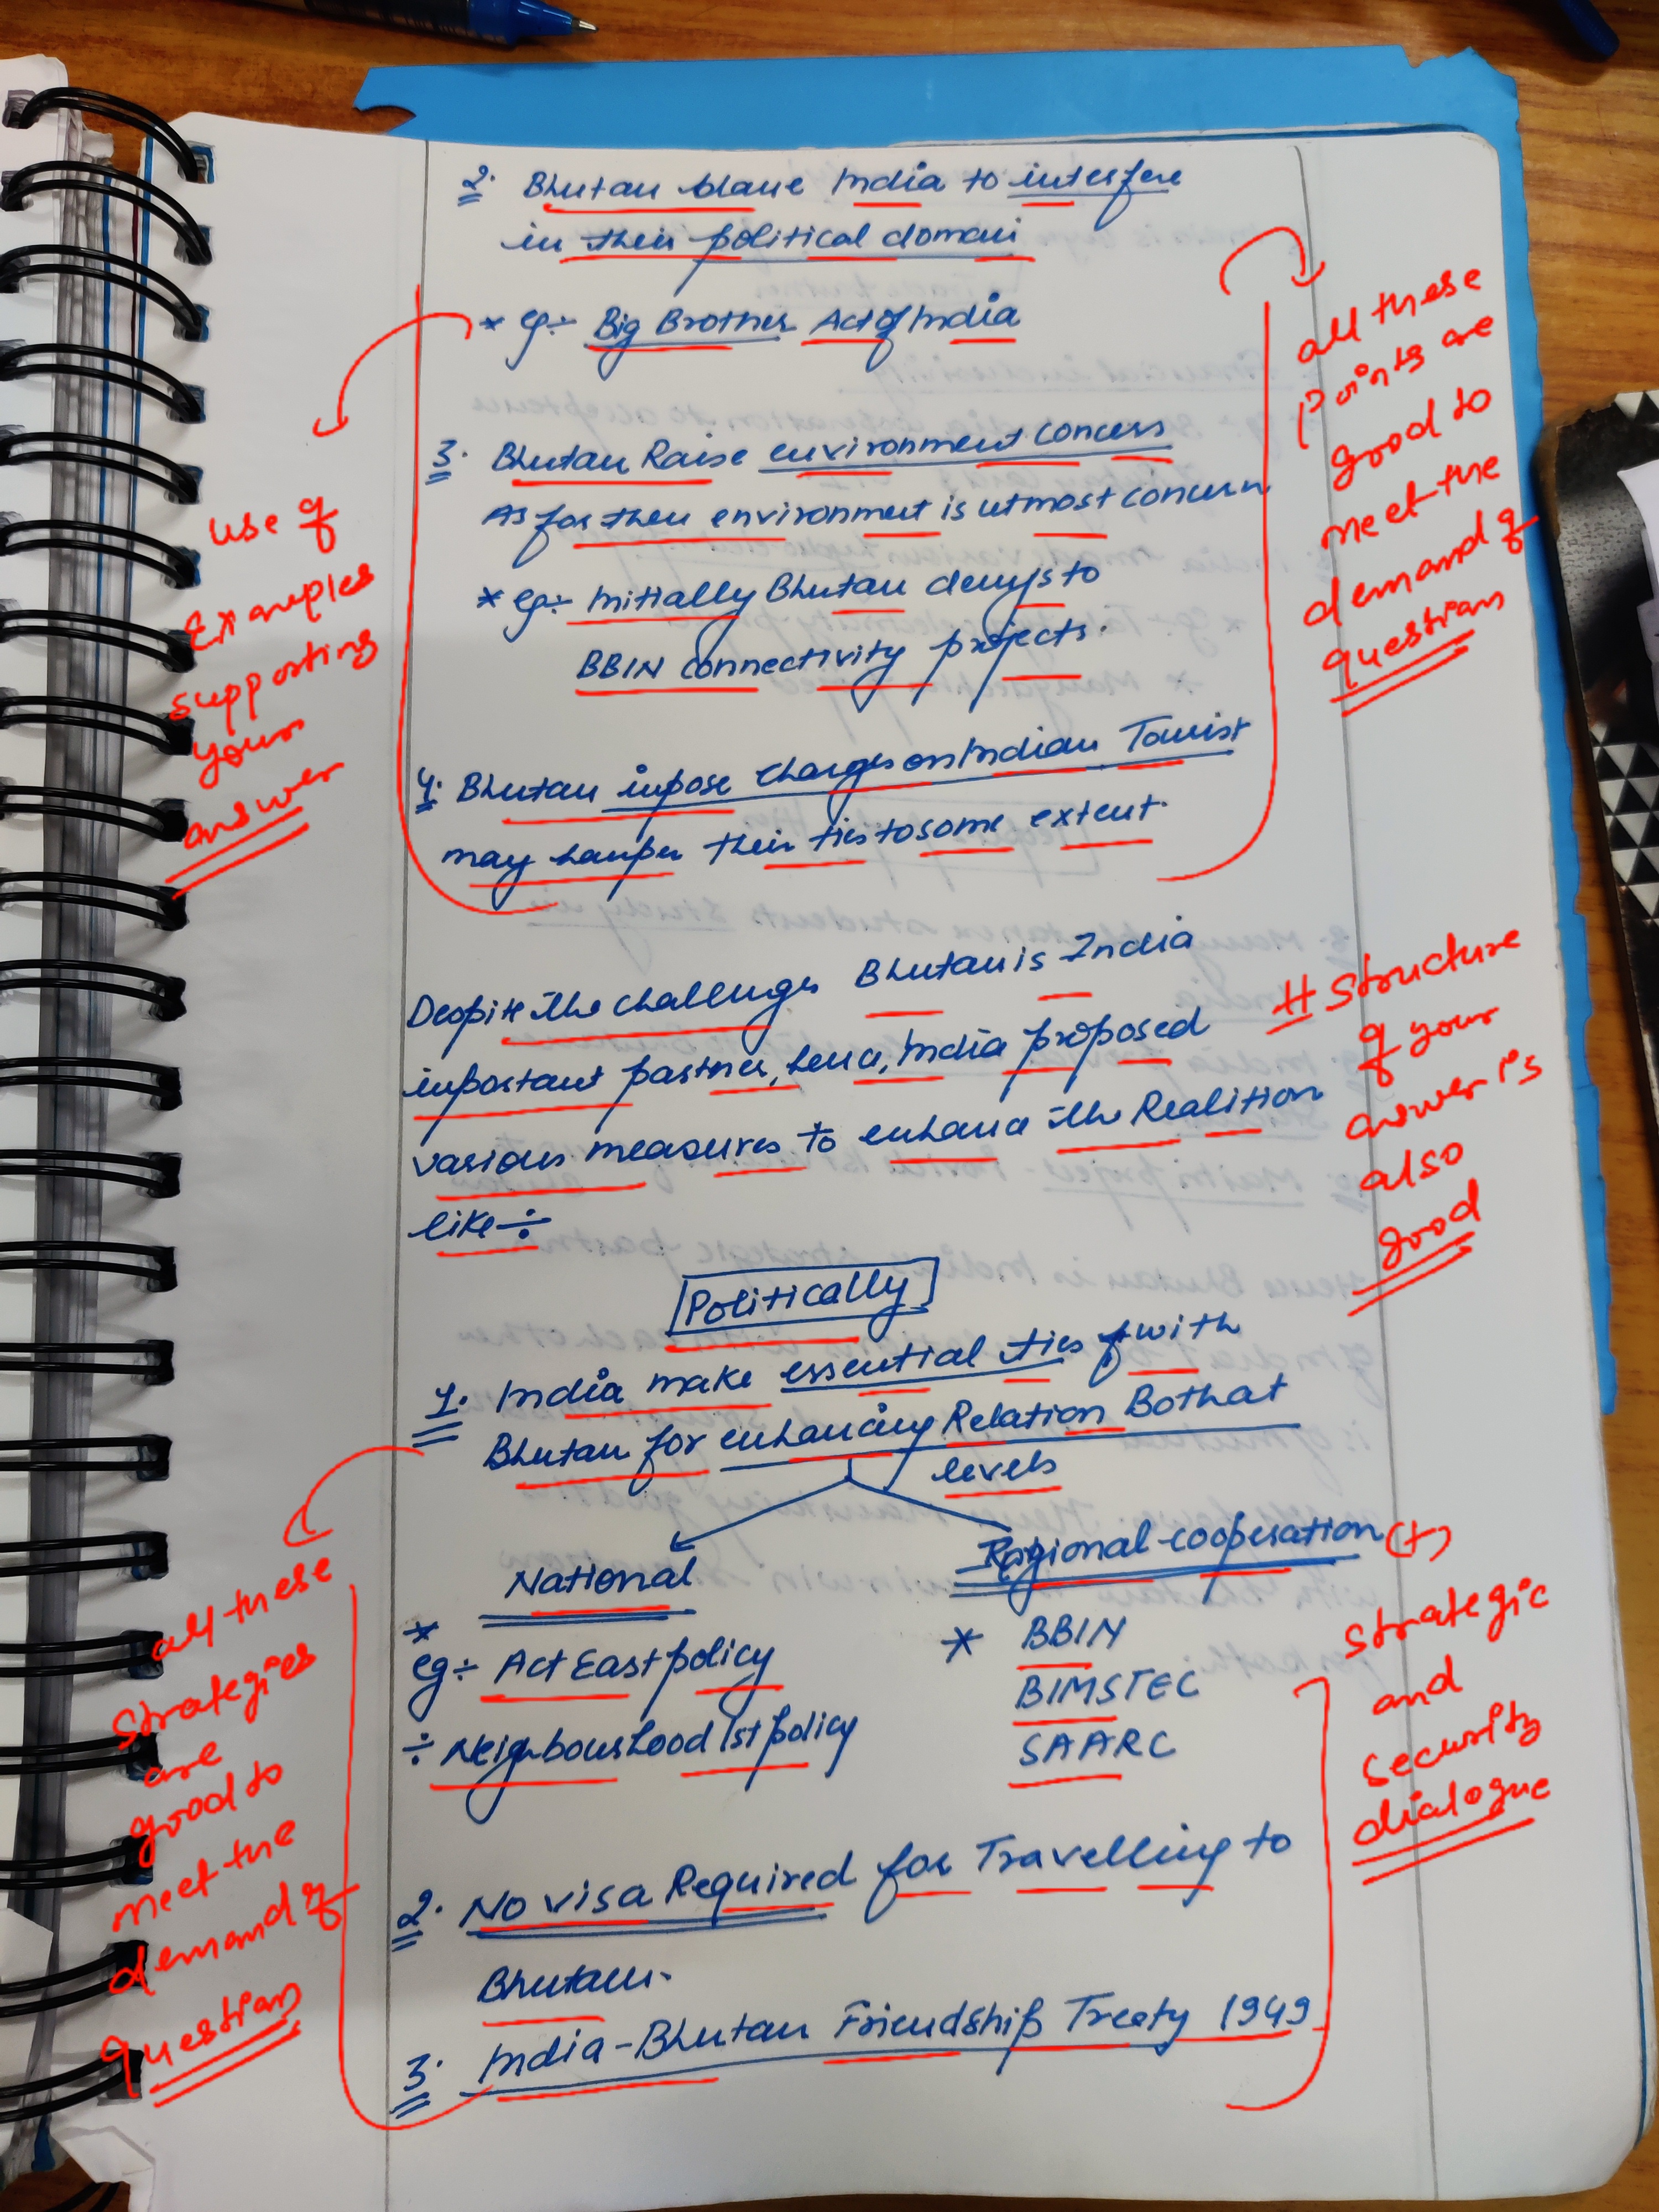 2. Bhutan blame India to interfere
in their political domain
* eg÷ Big Brother Act of India
3. Bhutan Raise environment concers
As for their environment is utmost concern
* eg÷ Initially Bhutan denys to
BBIN connectivity projects.
4. Bhutan impose charges on Indian Tourist
may hamper their ties to some extent.
use of
Examples
supporting
your
answer
all these
Points are
good to
meet the
demand of
question
Despite the challenges Bhutan is India
important partner, hence, India proposed
various measures to enhance the Realition
like÷
# Structure
of your
answer is
also
good
Politically
1. India make essential ties with
Bhutan for enhancing Relation Both at
levels
National
* eg÷ Act East policy
÷ Neighbourhood 1st policy
Ragional cooperation
* BBIN
BIMSTEC
SAARC
2. No visa Required for Travelling to
Bhutan.
3. India-Bhutan Friendship Treaty 1949
all these
strategies
are
good to
meet the
demand of
question
(+)
strategic
and
security
dialogue